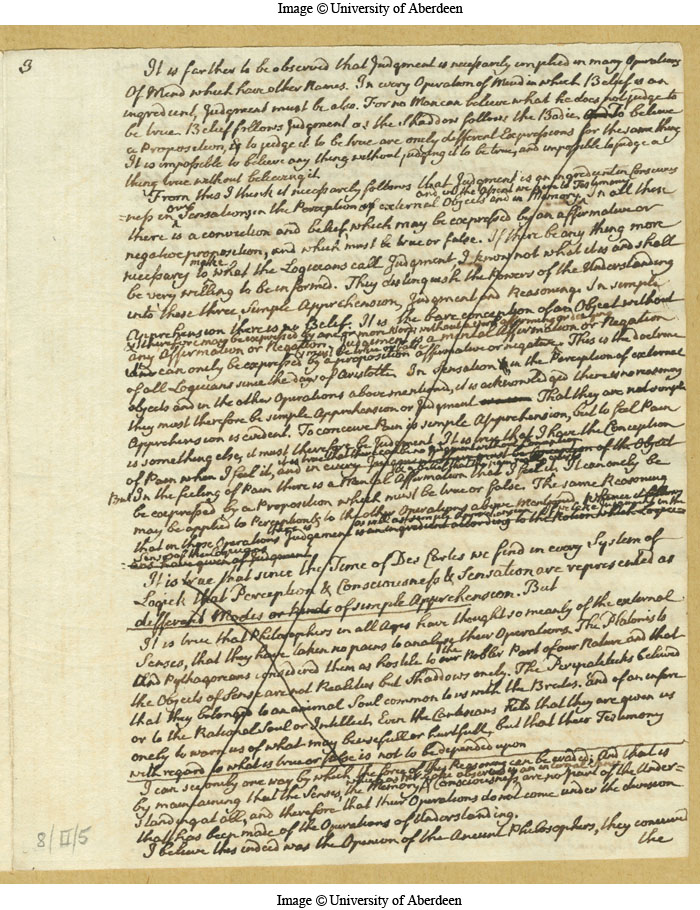 Image © University of Aberdeen
3
It is farther to be observed that Judgment is necessarly implied in many Operations
Of Mind which have other Names. In every Operation of Mind in which Belief is an
ingredient, Judgment must be also. For no Man can believe what he does not judge to
be true. Belief follows Judgment as the Shaddow follows the Bodie, to believe
a Proposition, & to judge it to be true are onely different Expressions for the same thing
It is impossible to believe any thing without judging it to be true, and impossible to judge a
thing true without believeing it.
From this I think it necessarly follows that Judgment is an ingredient in Conscious
and in the assent we give to Testimony
=ness in our Sensations, in the Perception of external Objects and in Memory. In all these
there is a conviction and belief which may be expressed by an affirmative or
negative proposition, and which must be true or false. If there be any thing more
necessary to make what the Logicians call Judgment I know not what it is and shall
be very willing to be informed. They distinguish the Powers of the Understanding
into these three Simple Apprehension, Judgment and Reasoning. In simple
Apprehension there is no Belief. It is the bare conception of an Object without
& therefore may be expressed by one or more Words without
any Affirmation or Negation. Judgement is a mental Affirmation or Negation
& must be true or false
and can only be expressed by a proposition affirmative or negative. This is the doctrine
of all Logicians since the days of Aristotle. In Sensation in the Perception of external
objects and in the other Operations above mentiond, it is acknowledged there is no reasoning
they must therefore be simple Apprehension or Judgment That they are not simple
Apprehension is evident. To conceive Pain is simple Apprehension, but to feel Pain
is something else, it must therefore be Judgment It is true that I have the Conception
of Pain when I feel it, and in every Judgment there must be conception of the Object
But In the feeling of Pain there is a Mental Affirmation that I feel it. It can onely be
be expressed by a Proposition which must be true or false. The same Reasoning
may be applied to Perception & to the other Operations above Mentioned. Whence it follows
that in those Operations Judgement is an ingredient according to the Notion which Logici=
=ans have given of Judgment
It is true that since the Time of Des Cartes we find in every System of
Logick that Perception & Consciousness & Sensation are represented as
different Modes or kinds of simple Apprehension. But
It is true that Philosophers in all Ages have thought so meanly of the external
Senses, that they have taken no pains to analyse their Operations. The Platonists
and Pythagoreans considered them as hostile to the Nobler Part of our Nature and that
the Objects of Sense are not Realities but Shaddows onely. The Peripateticks believed
that they belonged to an animal Soul common to us with the Brutes. and of an infere
or to the Rational Soul or Intellect. Even the Cartesians that they are given us
onely to warn us of what may be usefull or hurtfull, but that their Testimony
with regard to what is true or false is not to be depended upon
I can see onely one way by which the force of this Reasoning can be evaded; And that is
by maintaining that the Senses, the Memory & Consciousness are no part of the Under=
standing at all, and therefore that their Operations do not come under the division
that has been made of the Operations of Understanding.
I believe this indeed was the Opinion of the Ancient Philosophers, they conceived
the
8/II/5
Image © University of Aberdeen